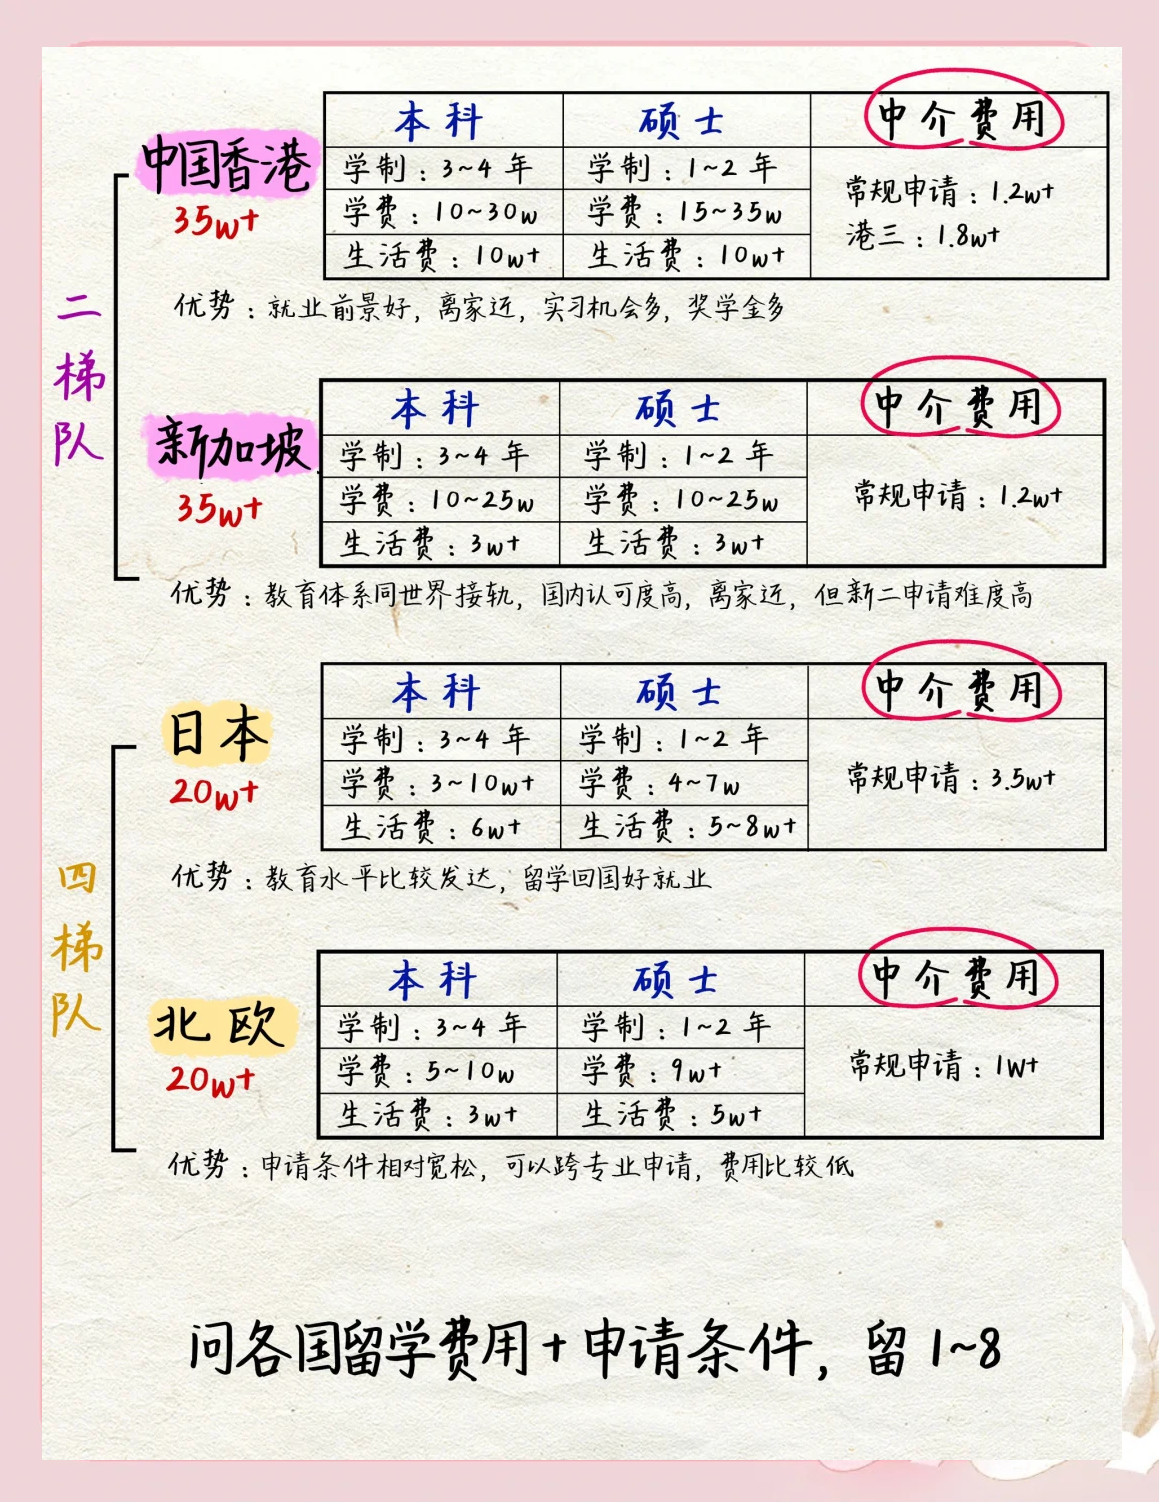 二梯队
中国香港
35w+
本科 硕士 中介费用
学制：3~4 年 学制：1~2 年
学费：10~30w 学费：15~35w
生活费：10w+ 生活费：10w+
常规申请：1.2w+
港三：1.8w+
优势：就业前景好，离家近，实习机会多，奖学金多
新加坡
35w+
本科 硕士 中介费用
学制：3~4 年 学制：1~2 年
学费：10~25w 学费：10~25w
生活费：3w+ 生活费：3w+
常规申请：1.2w+
优势：教育体系同世界接轨，国内认可度高，离家近，但新二申请难度高
四梯队
日本
20w+
本科 硕士 中介费用
学制：3~4 年 学制：1~2 年
学费：3~10w+ 学费：4~7w
生活费：6w+ 生活费：5~8w+
常规申请：3.5w+
优势：教育水平比较发达，留学回国好就业
北欧
20w+
本科 硕士 中介费用
学制：3~4 年 学制：1~2 年
学费：5~10w 学费：9w+
生活费：3w+ 生活费：5w+
常规申请：1W+
优势：申请条件相对宽松，可以跨专业申请，费用比较低
问各国留学费用+申请条件，留 1~8